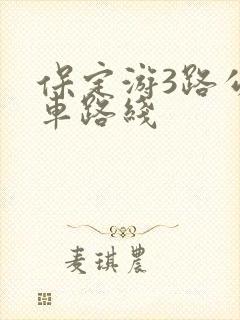 保定游3路公
車路綫
麦琪農